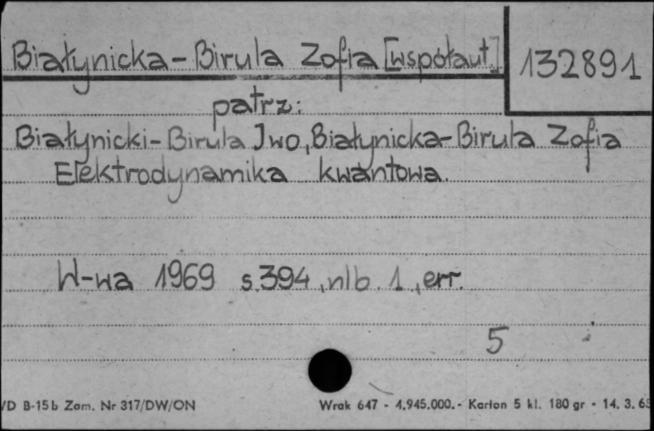 Białynicka-Birula Zofia [współaut.]
132891
patrz:
Białynicki-Birula Iwo, Białynicka-Birula Zofia
Elektrodynamika kwantowa.
W-wa 1969 s. 394, nlb. 1, err.
5
/D B-15b Zam. Nr 317/DW/ON
Wrak 647 - 4.945.000.- Karton 5 kl. 180 gr - 14. 3. 65